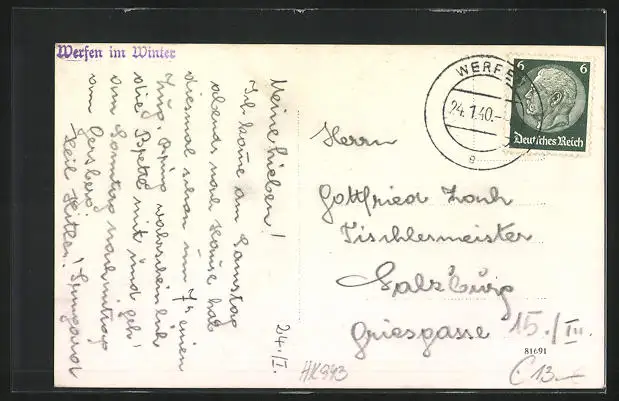 Werfen im Winter
Meine Lieben!
Ich komme am Samstag
abends nach Hause hab
diesmal schon um 7h einen
Zug. wahrscheinlich
die Bretter mit und geh'
am Sonntag nachmittag
am Gersberg
Heil Hitler! Irmgard
24./I.
WERFEN
24.1.40.-
g
6 6
Deutsches Reich
Herrn
Gottfried
Tischlermeister
Salzburg
Griesgasse 15./III.
81691
HK943
€ 13.-